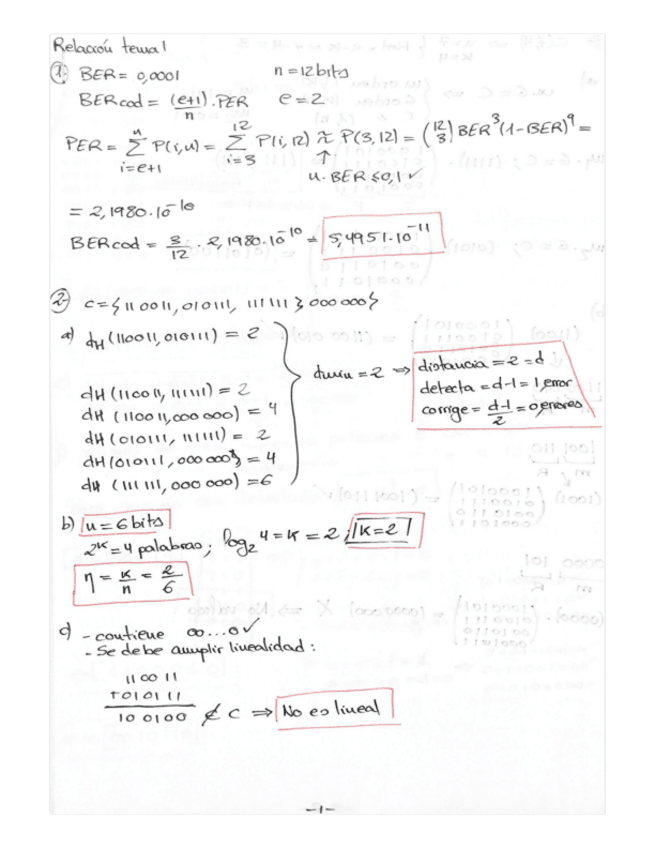 Relación tema 1
1. BER = 0,0001 n = 12 bits
BERcod = (e+1)/n . PER e = 2
PER = n∑i=e+1 P(i,n) = 12∑i=3 P(i,12) ≈ P(3,12) = (12 3) BER³(1-BER)⁹ =
↑
n·BER ≤ 0,1 ✓
= 2,1980·10⁻¹⁰
BERcod = 3/12 · 2,1980·10⁻¹⁰ = 5,4951·10⁻¹¹
2. C = {110011, 010111, 111111, 000000}
a) dH(110011, 010111) = 2
dmin = 2 ⇒ distancia = 2 = d
detecta = d-1 = 1, error
corrige = d-1/2 = 0, errores
dH(110011, 111111) = 2
dH (110011, 000000) = 4
dH (010111, 111111) = 2
dH (010111, 000000) = 4
dH (111111, 000000) = 6
b) n = 6 bits
2ᴷ = 4 palabras; log₂ 4 = K = 2; K = 2
η = K/n = 2/6
c) - contiene 00...0 ✓
- Se debe cumplir linealidad:
110011
+010111
100100 ∉ C ⇒ No es lineal
-1-